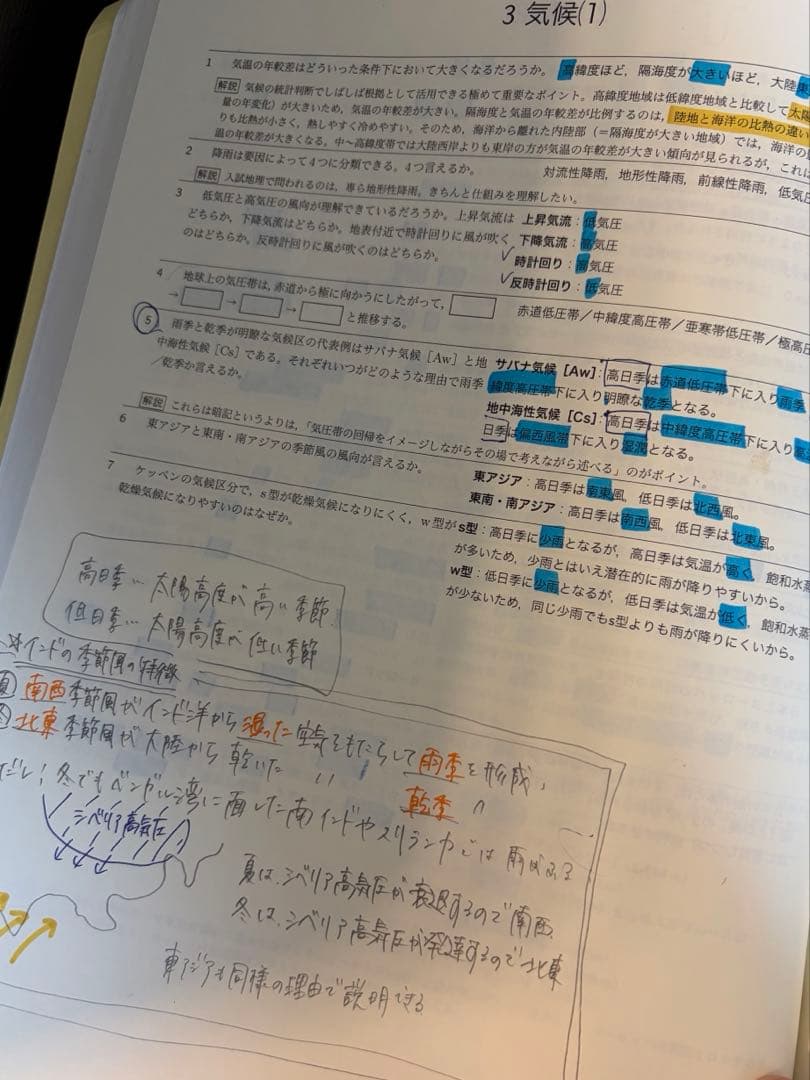 3 気候(1)
1 気温の年較差はどういった条件下において大きくなるだろうか。 高緯度ほど，隔海度が大きいほど，大陸東
解説 気候の統計判断でしばしば根拠として活用できる極めて重要なポイント。高緯度地域は低緯度地域と比較して太陽
量の年変化）が大きいため，気温の年較差が大きい。隔海度と気温の年較差が比例するのは，陸地と海洋の比熱の違い
りも比熱が小さく，熱しやすく冷めやすい。そのため，海洋から離れた内陸部（＝隔海度が大きい地域）では，海洋の
温の年較差が大きくなる。中〜高緯度帯では大陸西岸よりも東岸の方が気温の年較差が大きい傾向が見られるが，これは
2 降雨は要因によって4つに分類できる。4つ言えるか。 対流性降雨，地形性降雨，前線性降雨，低気圧
解説 入試地理で問われるのは，専ら地形性降雨。きちんと仕組みを理解したい。
3 低気圧と高気圧の風向が理解できているだろうか。上昇気流は
どちらか，下降気流はどちらか。地表付近で時計回りに風が吹く
のはどちらか。反時計回りに風が吹くのはどちらか。
上昇気流：低気圧
下降気流：高気圧
✓時計回り：高気圧
✓反時計回り：低気圧
4 地球上の気圧帯は，赤道から極に向かうにしたがって，□
→□→□→□と推移する。
赤道低圧帯／中緯度高圧帯／亜寒帯低圧帯／極高圧
5 雨季と乾季が明瞭な気候区の代表例はサバナ気候［Aw］と地
中海性気候［Cs］である。それぞれいつがどのような理由で雨季
／乾季か言えるか。
サバナ気候［Aw］：高日季は赤道低圧帯下に入り雨季
緯度高圧帯下に入り明瞭な乾季となる。
地中海性気候［Cs］：高日季は中緯度高圧帯下に入り
日季は偏西風帯下に入り湿潤となる。
解説 これらは暗記というよりは，「気圧帯の回帰をイメージしながらその場で考えながら述べる」のがポイント。
6 東アジアと東南・南アジアの季節風の風向が言えるか。
東アジア：高日季は南東風，低日季は北西風。
東南・南アジア：高日季は南西風，低日季は北東風。
7 ケッペンの気候区分で，s型が乾燥気候になりにくく，w型が
乾燥気候になりやすいのはなぜか。
s型：高日季に少雨となるが，高日季は気温が高く，飽和水蒸
が多いため，少雨とはいえ潜在的に雨が降りやすいから。
w型：低日季に少雨となるが，低日季は気温が低く，飽和水蒸
が少ないため，同じ少雨でもs型よりも雨が降りにくいから。
高日季… 太陽高度が高い季節
低日季… 太陽高度が低い季節
☆インドの季節風の特徴
夏 南西季節風がインド洋から湿った空気をもたらして雨季を形成、
冬 北東季節風が大陸から乾いた 〃 乾季 〃
だし！冬でもベンガル湾に面した南インドやスリランカでは雨がふる
シベリア高気圧
夏は、シベリア高気圧が衰退するので南西、
冬は、シベリア高気圧が発達するので北東
東アジアも同様の理由で説明できる